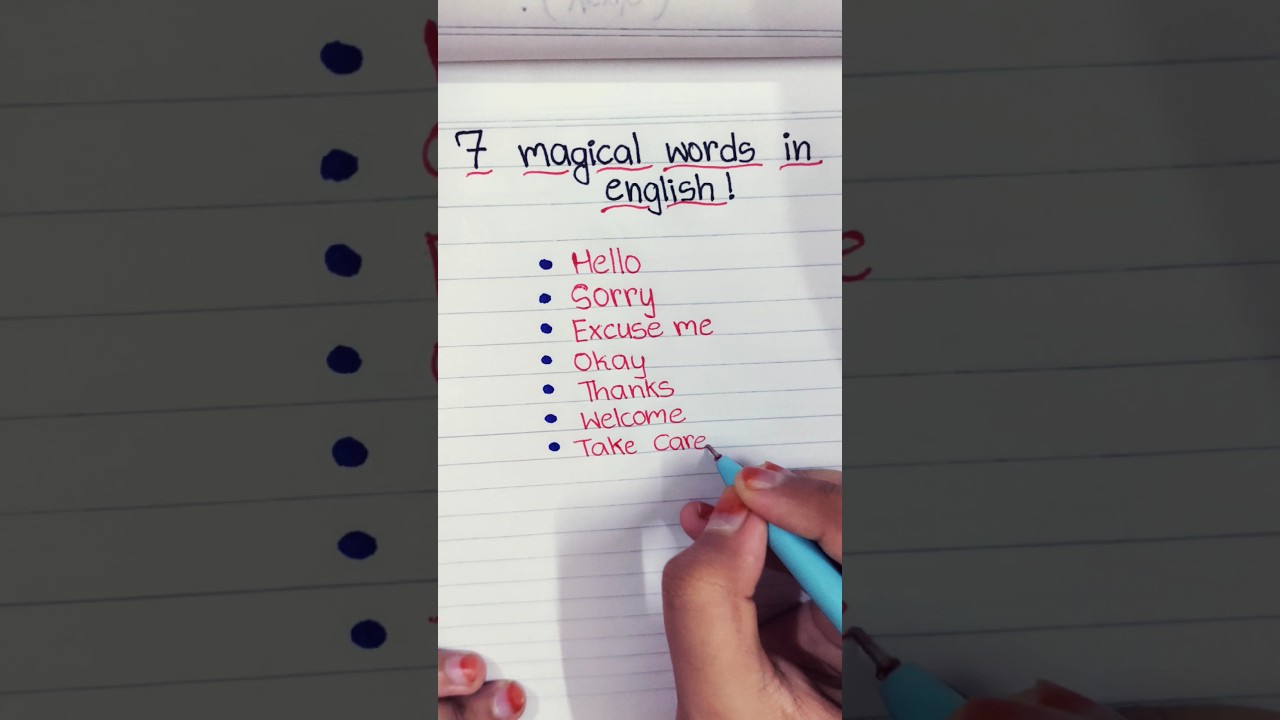 7 magical words in
english!
• Hello
• Sorry
• Excuse me
• Okay
• Thanks
• Welcome
• Take Care